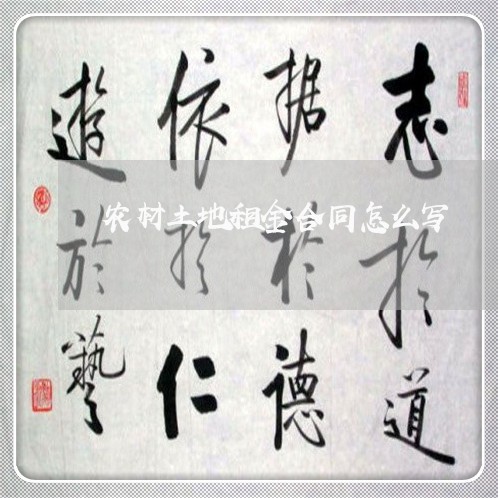 志於道
据於德
依於仁
遊於藝
农村土地租金合同怎么写